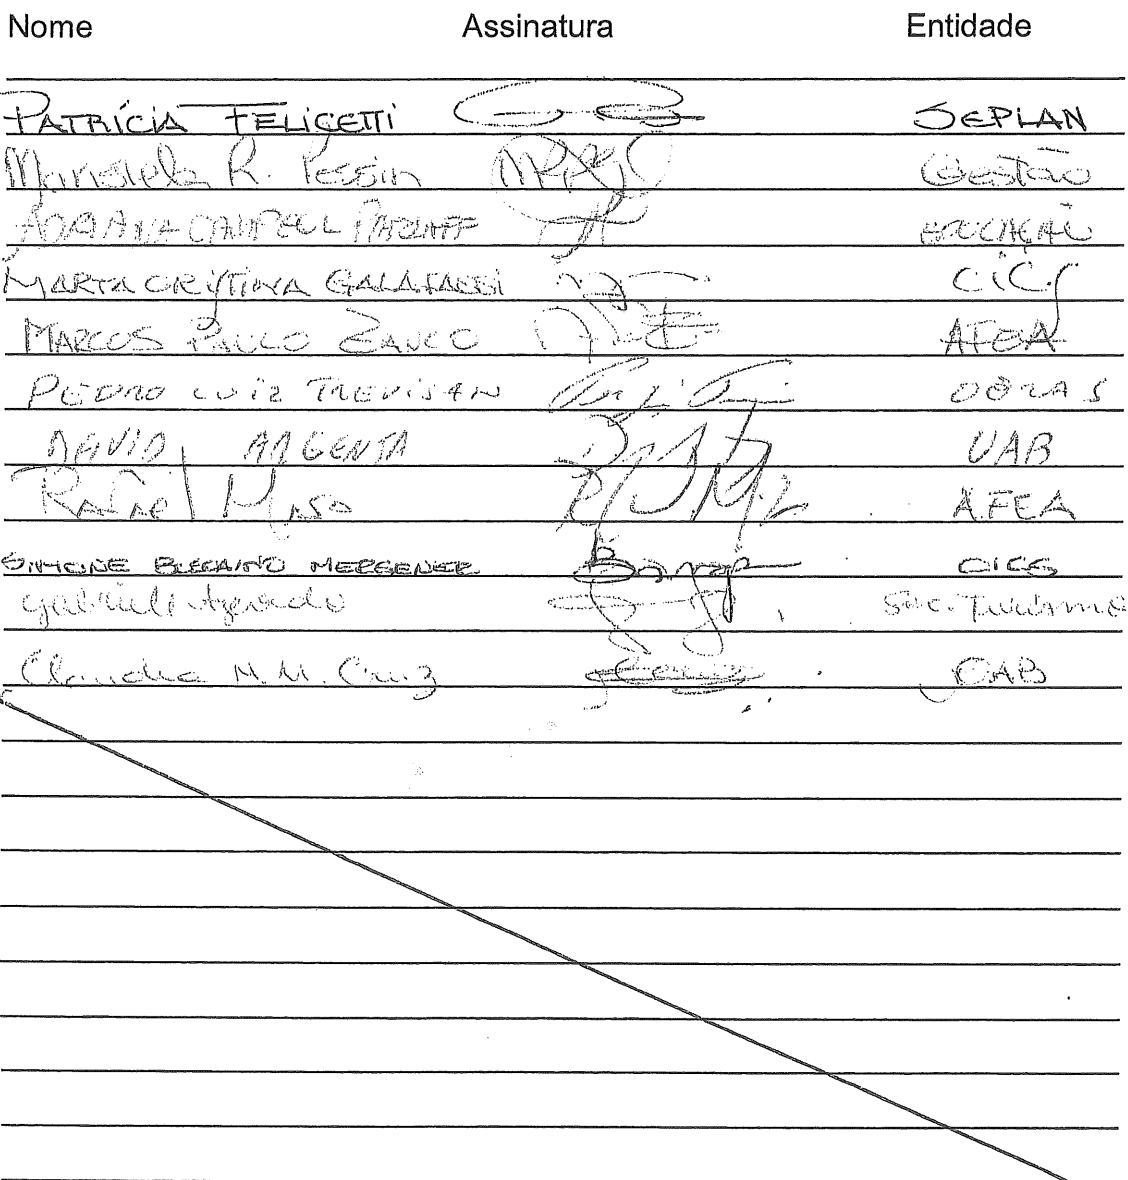 Nome Assinatura Entidade
PATRÍCIA FELICETTI SEPLAN
R. Pessin Gestão
ADRIANA EDUCAÇÃO
MARTA CRISTINA GALAFASSI CICS
MARCOS PAULO ZANCO AFEA
PEDRO LUIZ TREVISAN OBRAS
DAVID ARGENTA UAB
Rafael Maso AFEA
SIMONE MERGENER CICS
Gabrieli Azevedo Sec. Turismo
Claudia M. M. Cruz UAB